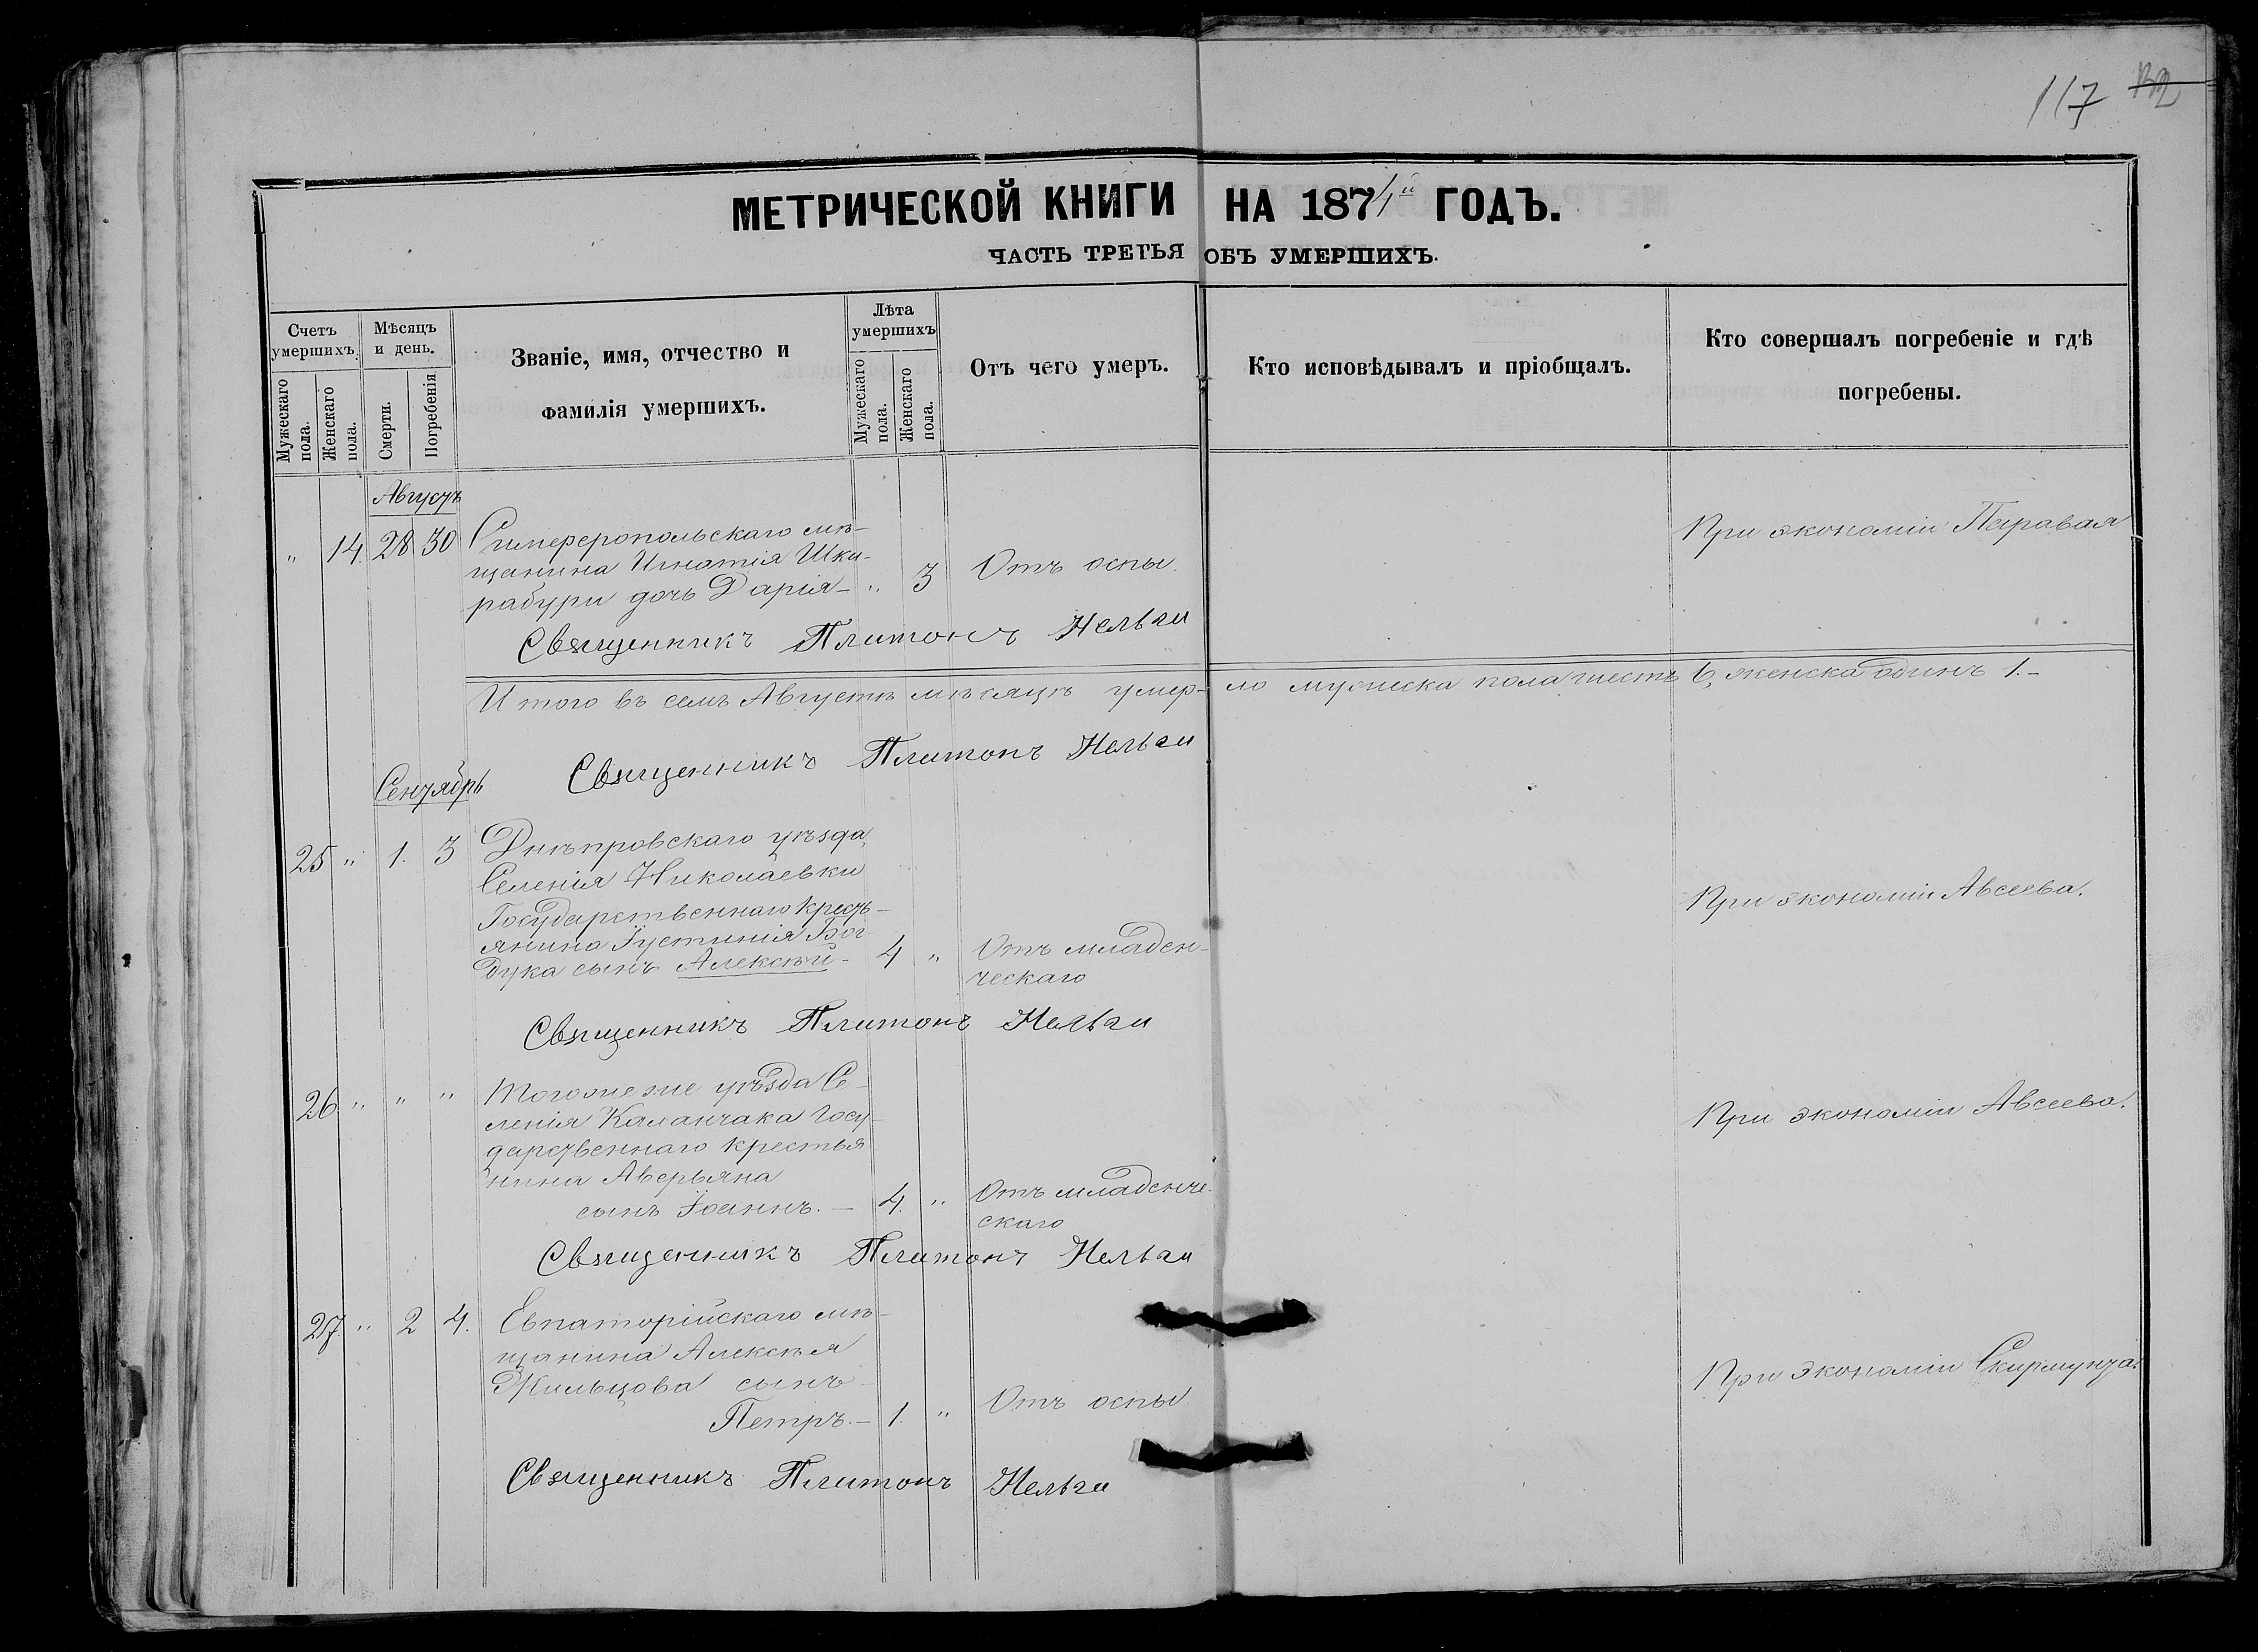 117
МЕТРИЧЕСКОЙ КНИГИ НА 1874й ГОДЪ.
ЧАСТЬ ТРЕТЬЯ ОБЪ УМЕРШИХЪ.
Счетъ умершихъ.
Мужескаго пола.
Женскаго пола.
Мѣсяцъ и день.
Смерти.
Погребенія
Званіе, имя, отчество и
фамилія умершихъ.
Лѣта умершихъ
Мужескаго пола.
Женскаго пола.
Отъ чего умеръ.
Кто исповѣдывалъ и пріобщалъ.
Кто совершалъ погребеніе и гдѣ
погребены.
Августъ
" 14. 28 30 Симферопольскаго мѣ-
щанина Игнатія Шка-
рабури дочь Дарія - " 3 Отъ оспы.
При экономіи
Священникъ Платонъ
Итого въ семъ Августѣ мѣсяцѣ умер-ло мужеска пола шесть 6, женска одинъ 1.-
Священникъ Платонъ
Сентябрь
25 " 1. 3 Днѣпровскаго уѣзда,
Селенія Николаевки
Государственнаго крестъ-
янина Іустинія Бог-
дука сынъ Алексѣй - 4 " Отъ младен-
ческаго
При экономіи Авсеева.
Священникъ Платонъ
26. " " " Тогоже уѣзда Се-
ленія Каланчака Госу-
дарственнаго крестья
нина Аверьяна
сынъ Іоаннъ. - 4. " Отъ младенче-
скаго
При экономіи Авсеева.
Священникъ Платонъ
27. " 2 4. Евпаторійскаго мѣ-
щанина Алексѣя
Жильцова сынъ
Петръ. - 1. " Отъ оспы
При экономіи Скирмунта.
Священникъ Платонъ